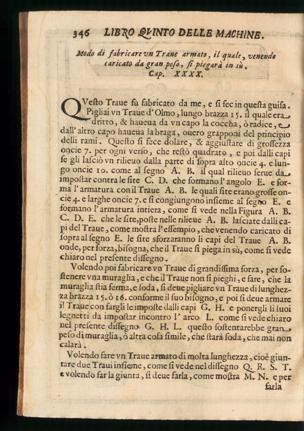 346 LIBRO QVINTO DELLE MACHINE.
Modo di fabricare vn Traue armato, il quale, venendo
caricato da gran peso, si piegarà in sù.
Cap. XXXX.
QVesto Traue fu fabricato da me, e si fece in questa guisa.
Pigliai vn Traue d'Olmo, lungo brazza 15. il quale era
dritto, & haueua da vn capo la coccha, ò radice, e
dall'altro capo haueua la braga, ouero grappoi del principio
delli rami. Questo si fece dolare, & aggiustare di grossezza
oncie 7. per ogni verso, che restò quadrato, e poi dalli capi
se gli lasciò vn rilieuo dalla parte di sopra alto oncie 4. e lun-
go oncie 10. come al segno A. B. il qual rilieuo serue da
impostar contra le site C. D. che formano l'angolo E. e for-
ma l'armatura con il Traue A. B. le quali site erano grosse on-
cie 4. e larghe oncie 7. e si congiungono insieme al segno E. e
formano l'armatura intiera, come si vede nella Figura A. B.
C. D. E. che le site, poste nelle rilieue A. B. lasciate dalli ca-
pi del Traue, come mostra l'essempio, che venendo caricato di
sopra al segno E. le site sforzaranno li capi del Traue A. B.
onde, per forza, bisogna, che il Traue si piega in sù, come si vede
chiaro nel presente dissegno.
Volendo poi fabricare vn Traue di grandissima forza, per so-
stenere vna muraglia, e che il Traue non si pieghi, e fare, che la
muraglia stia ferma, e soda, si deue pigliare vn Traue di lunghez-
za brazza 15. ò 16. conforme il suo bisogno, e poi si deue armare
il Traue con fargli le imposte dalli capi G. H. e ponergli li suoi
legnetti da impostar incontro l'arco L. come si vede chiaro
nel presente dissegno G. H. L. questo sostentarebbe gran
peso di muraglia, ò altra cosa simile, che starà soda, che mai non
calarà.
Volendo fare vn Traue armato di molta lunghezza, cioè giun-
tare due Traui insieme, come si vede nel dissegno Q. R. S. T.
e volendo far la giunta, si deue farla, come mostra M. N. e per
farla